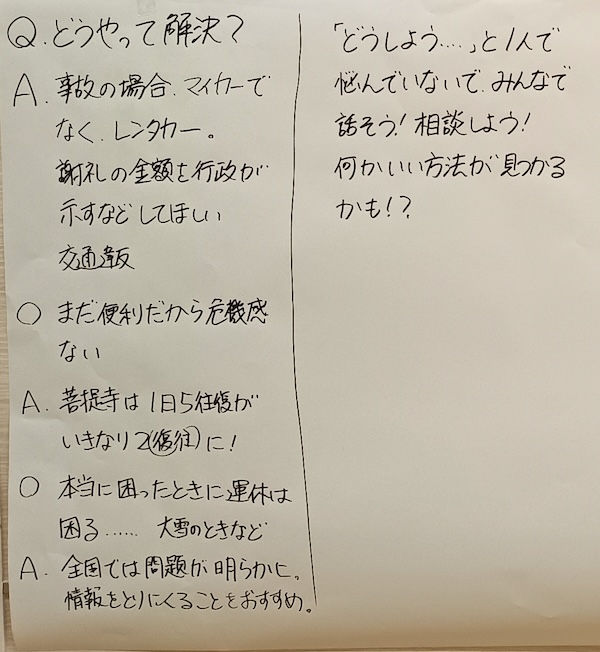 Q. どうやって解決?
A. 事故の場合、マイカーで
なく、レンタカー。
謝礼の金額を行政が
示すなどしてほしい
交通違反
○ まだ便利だから危機感
ない
A. 菩提寺は1日5往復が
いきなり2(復往)に!
○ 本当に困ったときに運休は
困る…… 大雪のときなど
A. 全国では問題が明らかに。
情報をとりにくることをおすすめ。
「どうしよう….」と1人で
悩んでいないで、みんなで
話そう! 相談しよう!
何かいい方法が見つかる
かも!?